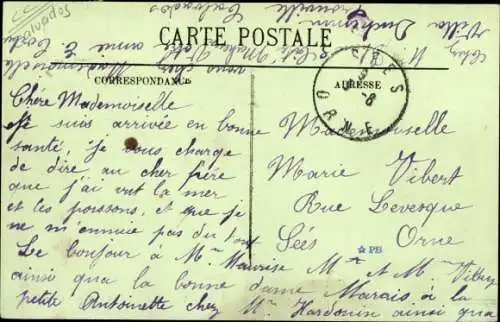 CARTE POSTALE
CORRESPONDANCE
ADRESSE
Chère Mademoiselle
Je suis arrivée en bonne
santé, je vous charge
de dire au cher frère
que j'ai vut la mer
et les poissons, et que je
ne m'ennuie pas du tout
Le bonjour à Mme Maurise Mme et M. Vibert
ainsi qua la bonne dame Marais à la
petite Antoinette chez Mme Hardouin ainsi qua
Mademoiselle
Marie Vibert
Rue Levesque
Sées Orne
PB
SEES
ORNE
Villa
Trouville
Calvados
Calvados